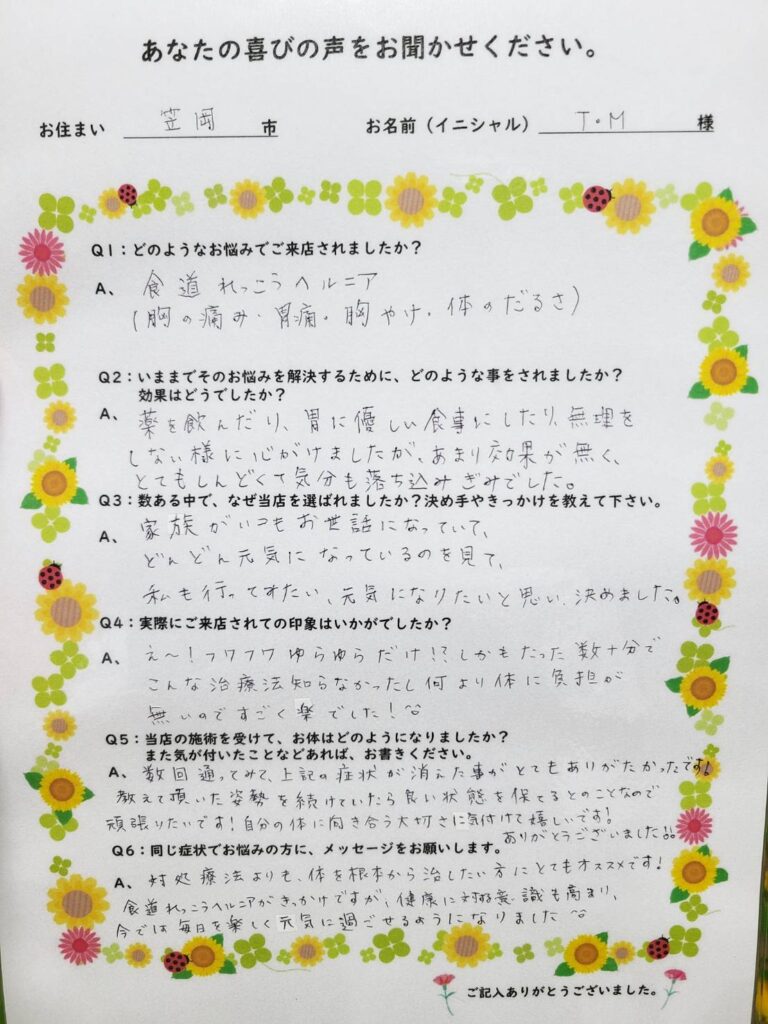 あなたの喜びの声をお聞かせください。
お住まい 笠岡 市 お名前（イニシャル） T・M 様
Q1：どのようなお悩みでご来店されましたか？
A、 食道れっこうヘルニア
(胸の痛み・胃痛。胸やけ・体のだるさ)
Q2：いままでそのお悩みを解決するために、どのような事をされましたか？
効果はどうでしたか？
A、 薬を飲んだり、胃に優しい食事にしたり、無理を
しない様に心がけましたが、あまり効果が無く、
とてもしんどくて気分も落ち込みぎみでした。
Q3：数ある中で、なぜ当店を選ばれましたか？決め手やきっかけを教えて下さい。
A、 家族がいつもお世話になっていて、
どんどん元気になっているのを見て、
私も行ってみたい、元気になりたいと思い、決めました。
Q4：実際にご来店されての印象はいかがでしたか？
A、 え〜！フワフワゆらゆらだけ！？しかもたった数十分で
こんな治療法知らなかったし何より体に負担が
無いのですごく楽でした！
Q5：当店の施術を受けて、お体はどのようになりましたか？
また気が付いたことなどあれば、お書きください。
A、 数回通ってみて、上記の症状が消えた事がとてもありがたかったです！
教えて頂いた姿勢を続けていたら良い状態を保てるとのことなので
頑張りたいです！自分の体に向き合う大切さに気付けて嬉しいです！
ありがとうございました！！
Q6：同じ症状でお悩みの方に、メッセージをお願いします。
A、 対処療法よりも、体を根本から治したい方にとてもオススメです！
食道れっこうヘルニアがきっかけですが、健康に対する意識も高まり、
今では毎日を楽しく元気に過ごせるようになりました
ご記入ありがとうございました。